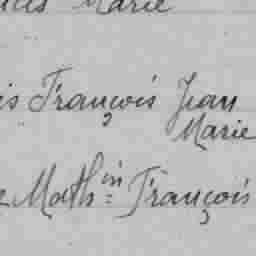 Marie
François Jean
Marie
Mathin François